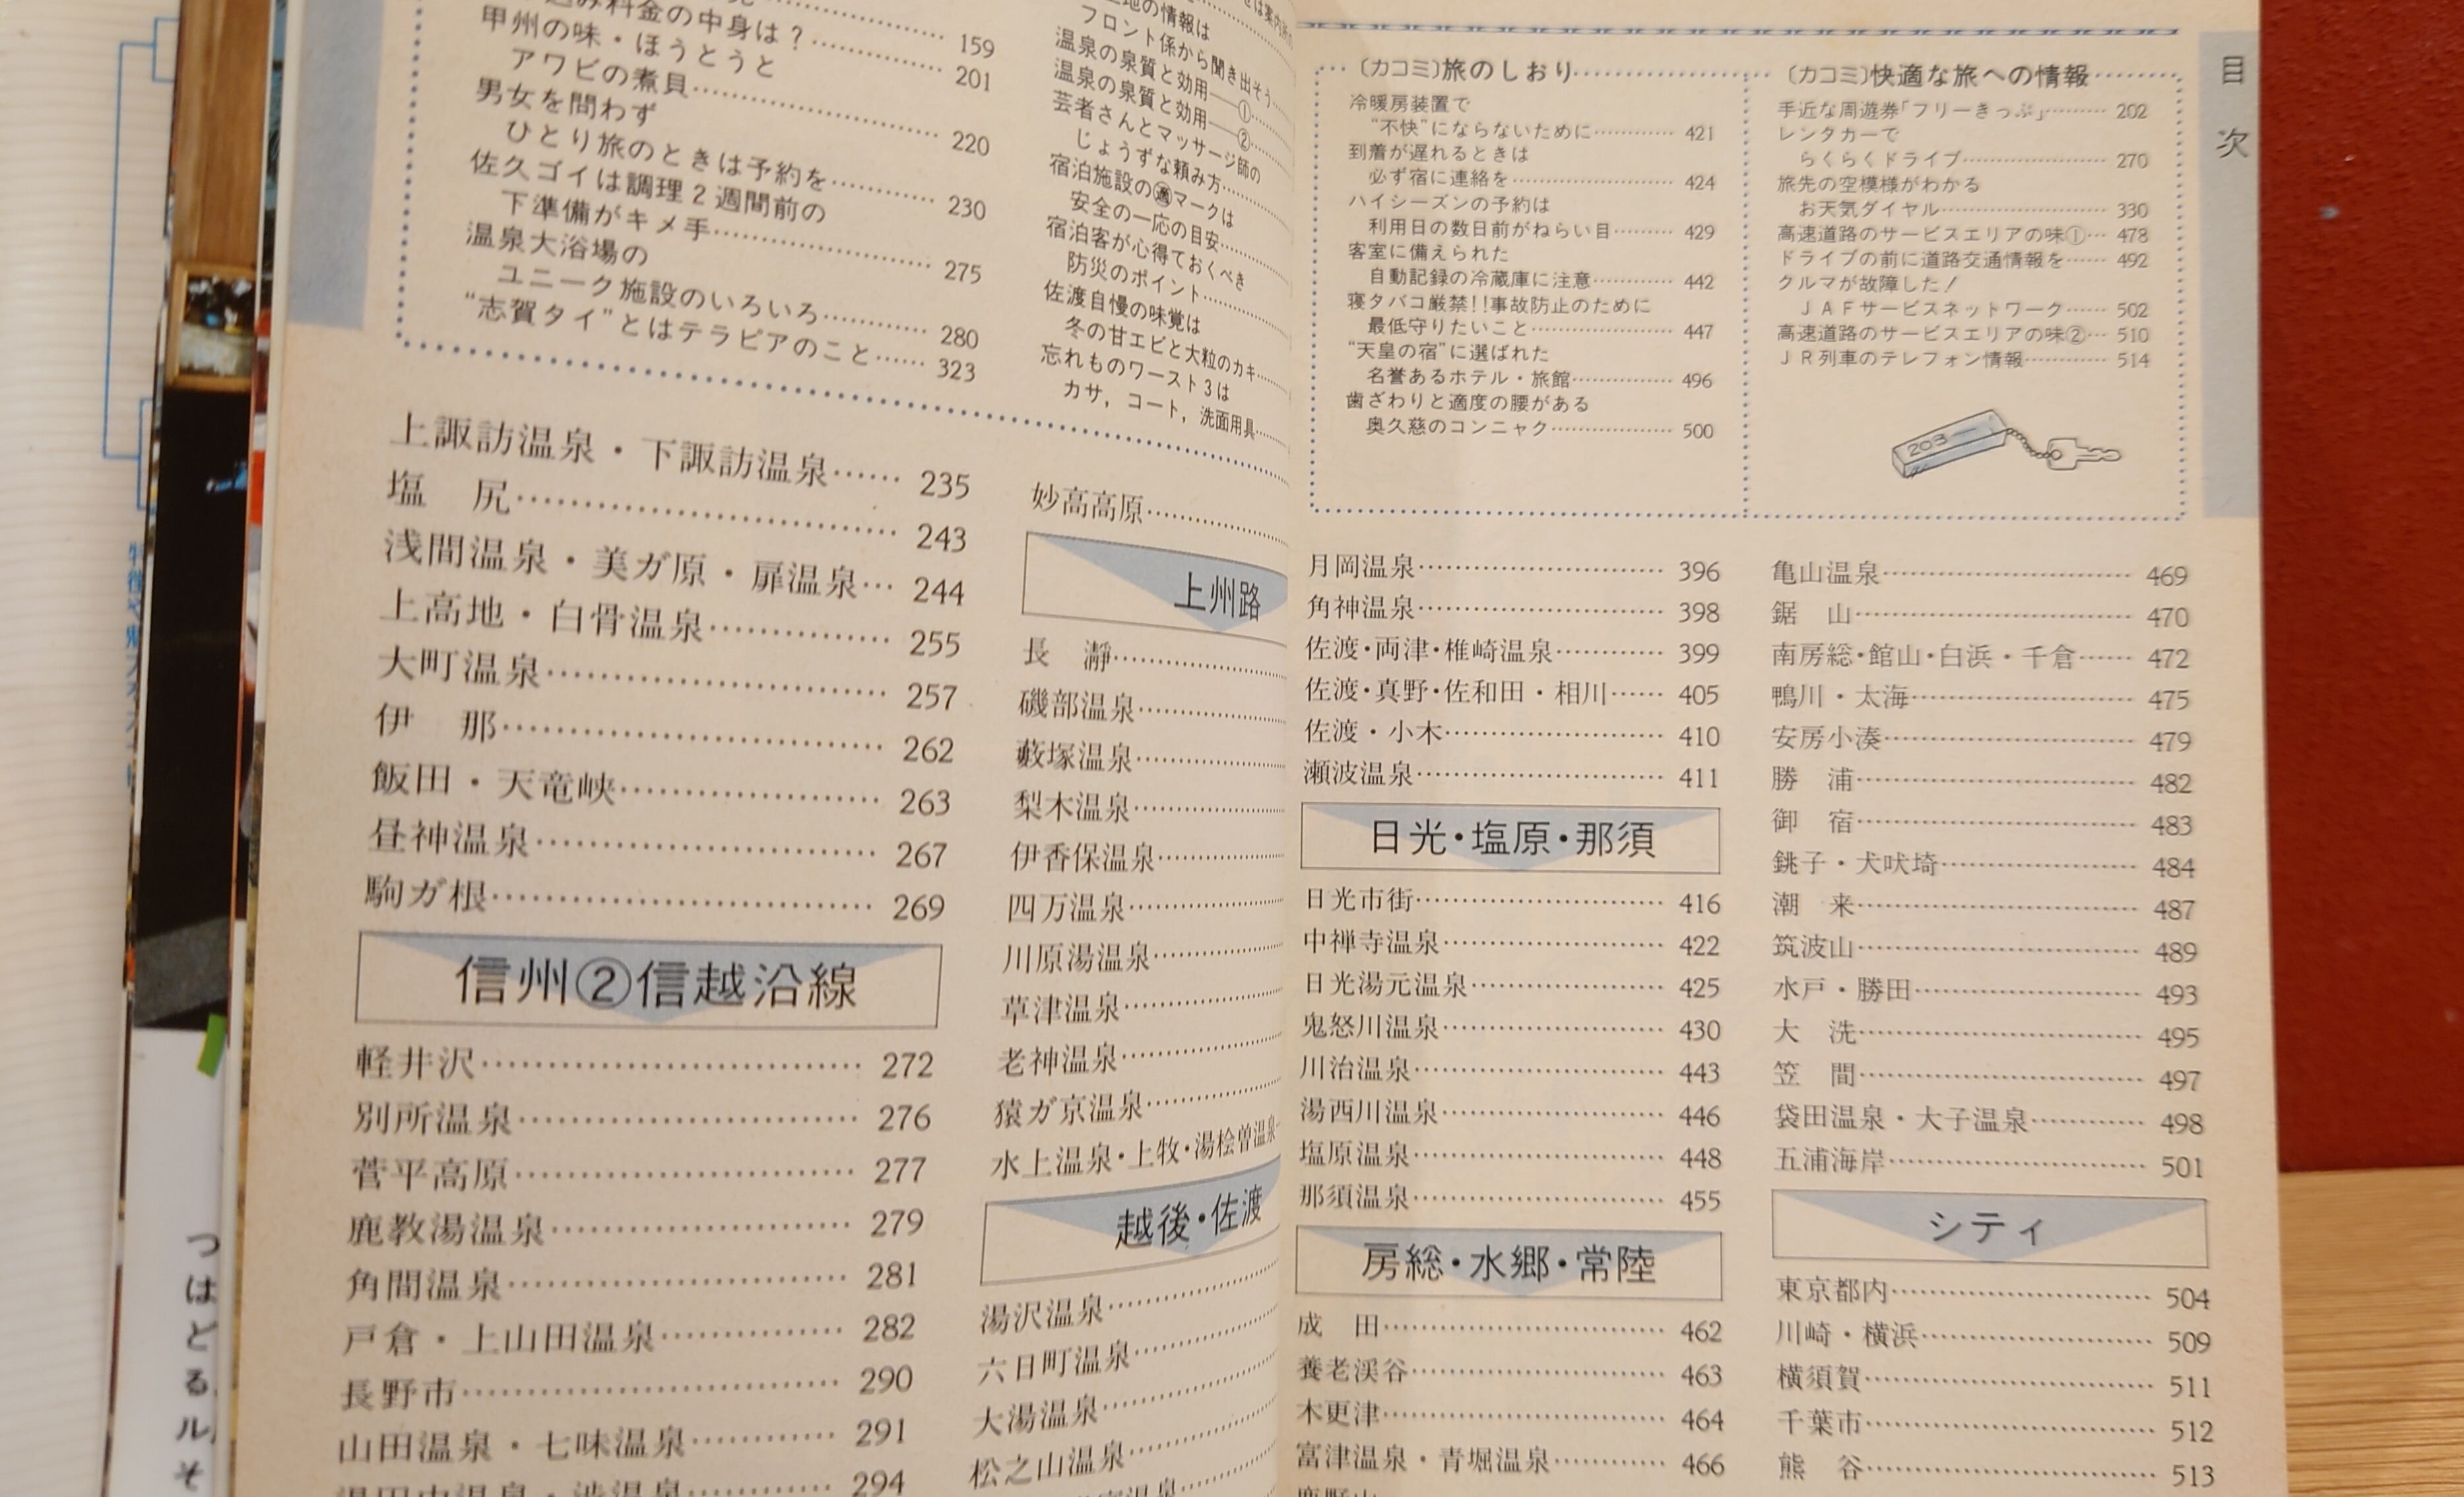 み料金の中身は？…… 201
159
甲州の味・ほうとうと
アワビの煮貝…… 220
男女を問わず
ひとり旅のときは予約を…… 230
佐久ゴイは調理2週間前の
下準備がキメ手…… 275
温泉大浴場の
ユニーク施設のいろいろ…… 280
“志賀タイ”とはテラピアのこと…… 323
地の情報は
フロント係から聞き出そう……
温泉の泉質と効用――①……
温泉の泉質と効用――②……
芸者さんとマッサージ師の
じょうずな頼み方……
宿泊施設の適マークは
安全の一応の目安……
宿泊客が心得ておくべき
防災のポイント……
佐渡自慢の味覚は
冬の甘エビと大粒のカキ……
忘れものワースト3は
カサ，コート，洗面用具……
上諏訪温泉・下諏訪温泉…… 235
塩　尻…… 243
浅間温泉・美ガ原・扉温泉… 244
上高地・白骨温泉…… 255
大町温泉…… 257
伊　那…… 262
飯田・天竜峡…… 263
昼神温泉…… 267
駒ガ根…… 269
信州②信越沿線
軽井沢…… 272
別所温泉…… 276
菅平高原…… 277
鹿教湯温泉…… 279
角間温泉…… 281
戸倉・上山田温泉…… 282
長野市…… 290
山田温泉・七味温泉…… 291
294
妙高高原……
上州路
長　瀞……
磯部温泉……
藪塚温泉……
梨木温泉……
伊香保温泉……
四万温泉……
川原湯温泉……
草津温泉……
老神温泉……
猿ガ京温泉……
水上温泉・上牧・湯桧曽温泉
越後・佐渡
湯沢温泉……
六日町温泉……
大湯温泉……
松之山温泉……
目次
〔カコミ〕旅のしおり
冷暖房装置で
“不快”にならないために…… 421
到着が遅れるときは
必ず宿に連絡を…… 424
ハイシーズンの予約は
利用日の数日前がねらい目…… 429
客室に備えられた
自動記録の冷蔵庫に注意…… 442
寝タバコ厳禁!!事故防止のために
最低守りたいこと…… 447
“天皇の宿”に選ばれた
名誉あるホテル・旅館…… 496
歯ざわりと適度の腰がある
奥久慈のコンニャク…… 500
〔カコミ〕快適な旅への情報
手近な周遊券「フリーきっぷ」…… 202
レンタカーで
らくらくドライブ…… 270
旅先の空模様がわかる
お天気ダイヤル…… 330
高速道路のサービスエリアの味①… 478
ドライブの前に道路交通情報を…… 492
クルマが故障した！
ＪＡＦサービスネットワーク…… 502
高速道路のサービスエリアの味②… 510
ＪＲ列車のテレフォン情報…… 514
203
月岡温泉…… 396
角神温泉…… 398
佐渡・両津・椎崎温泉…… 399
佐渡・真野・佐和田・相川…… 405
佐渡・小木…… 410
瀬波温泉…… 411
日光・塩原・那須
日光市街…… 416
中禅寺温泉…… 422
日光湯元温泉…… 425
鬼怒川温泉…… 430
川治温泉…… 443
湯西川温泉…… 446
塩原温泉…… 448
那須温泉…… 455
房総・水郷・常陸
成　田…… 462
養老渓谷…… 463
木更津…… 464
富津温泉・青堀温泉…… 466
亀山温泉…… 469
鋸　山…… 470
南房総・館山・白浜・千倉…… 472
鴨川・太海…… 475
安房小湊…… 479
勝　浦…… 482
御　宿…… 483
銚子・犬吠埼…… 484
潮　来…… 487
筑波山…… 489
水戸・勝田…… 493
大　洗…… 495
笠　間…… 497
袋田温泉・大子温泉…… 498
五浦海岸…… 501
シティ
東京都内…… 504
川崎・横浜…… 509
横須賀…… 511
千葉市…… 512
熊　谷…… 513
つはどるルそ